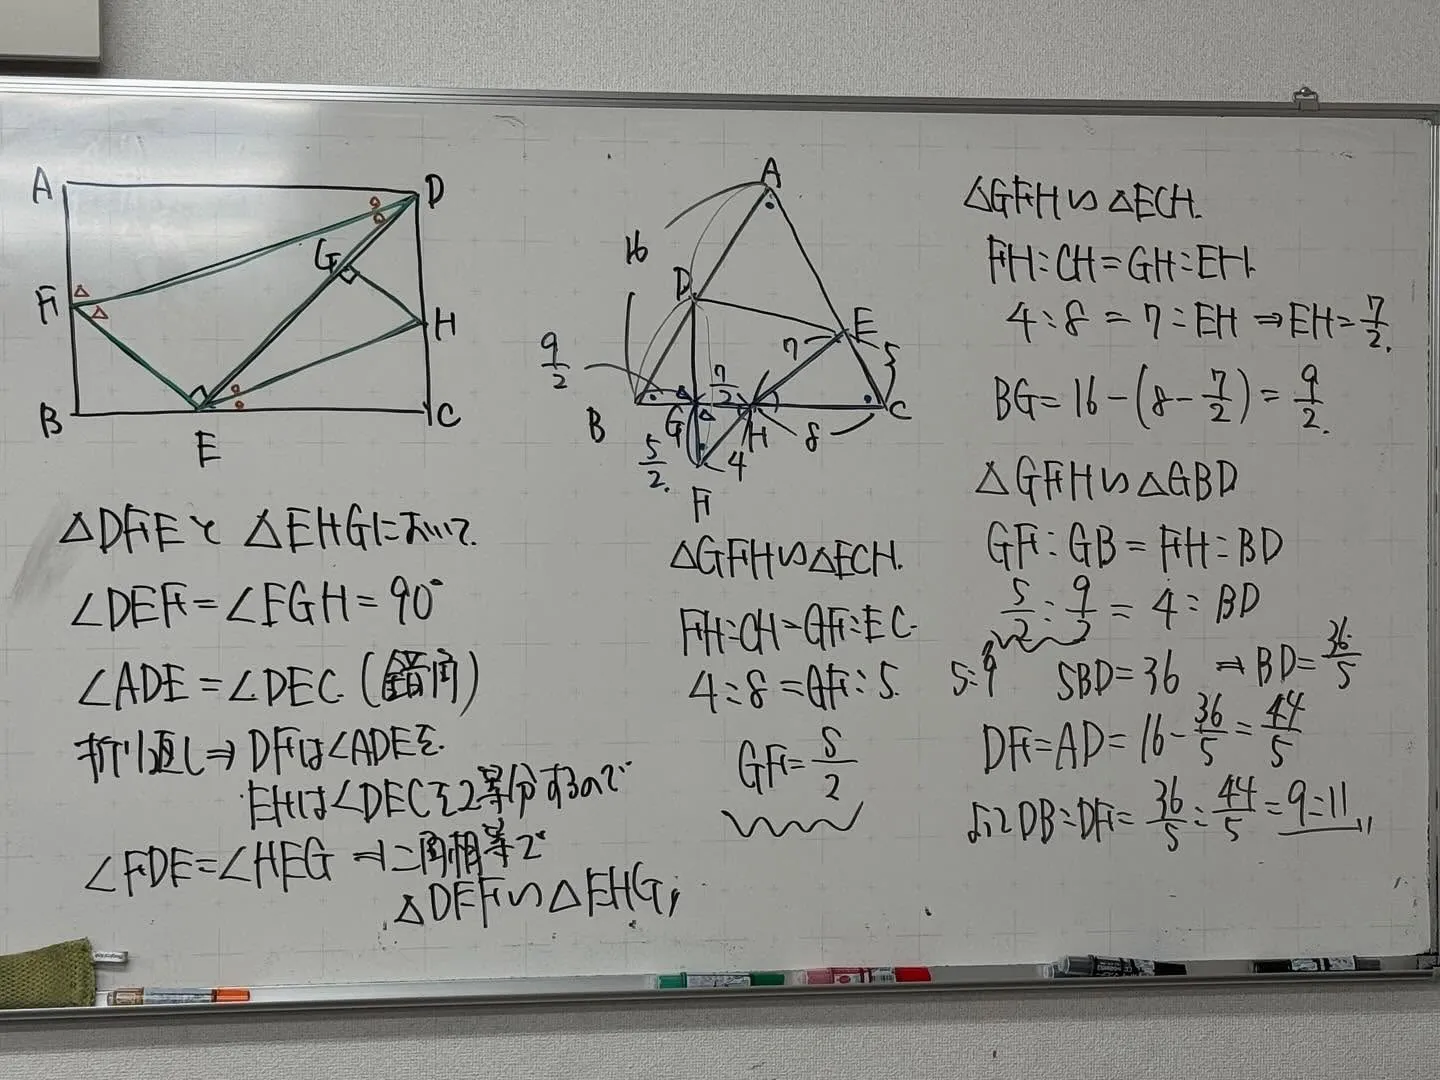 A
D
G
F
H
B
E
C
△DFEと△EHGにおいて
∠DEF=∠EGH=90°
∠ADE=∠DEC(錯角)
折り返し⇒DFは∠ADEを
EHは∠DECを2等分するので
∠FDE=∠HEG⇒二角相等で
△DEF∽△EHG
A
16
D
E
7
5
9/2
7/2
B
G
H
8
C
5/2
4
F
△GFH∽△ECH.
FH:CH=GF:EC
4:8=GF:5
GF=5/2
△GFH∽△ECH.
FH:CH=GH:EH
4:8=7:EH⇒EH=7/2.
BG=16-(8-7/2)=9/2.
△GFH∽△GBD
GF:GB=FH:BD
5/2:9/2=4:BD
5:9 5BD=36 ⇒BD=36/5
DF=AD=16-36/5=44/5
よってDB:DF=36/5:44/5=9:11